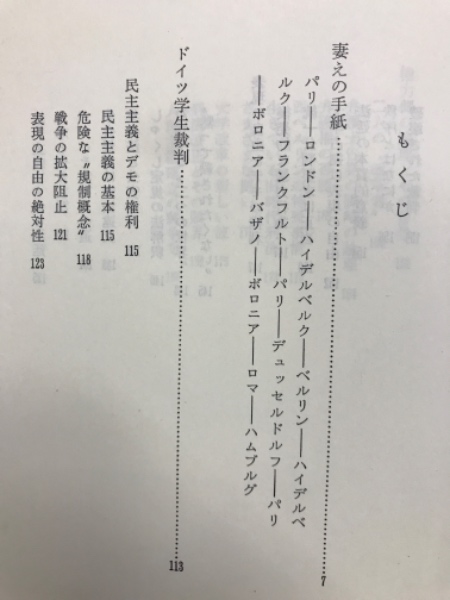 もくじ
妻えの手紙……………………7
パリ――ロンドン――ハイデルベルク――ベルリン――ハイデルベ
ルク――フランクフルト――パリ――デュッセルドルフ――パリ
――ボロニア――バザノ――ボロニア――ロマ――ハムブルグ
ドイツ学生裁判……………………113
民主主義とデモの権利 115
民主主義の基本 115
危険な〝規制概念〟 118
戦争の拡大阻止 121
表現の自由の絶対性 123